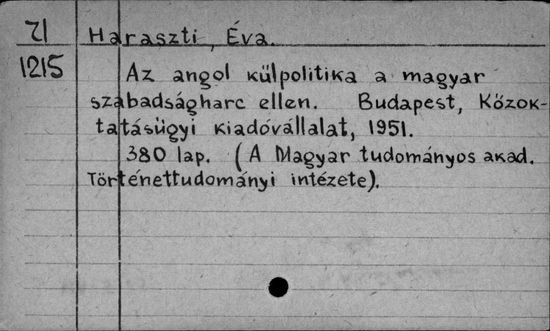 21 Haraszti, Éva.
1215 Az angol külpolitika a magyar
szabadságharc ellen. Budapest, Közok-
tatásügyi kiadóvállalat, 1951.
380 lap. (A Magyar tudományos akad.
Történettudományi intézete).